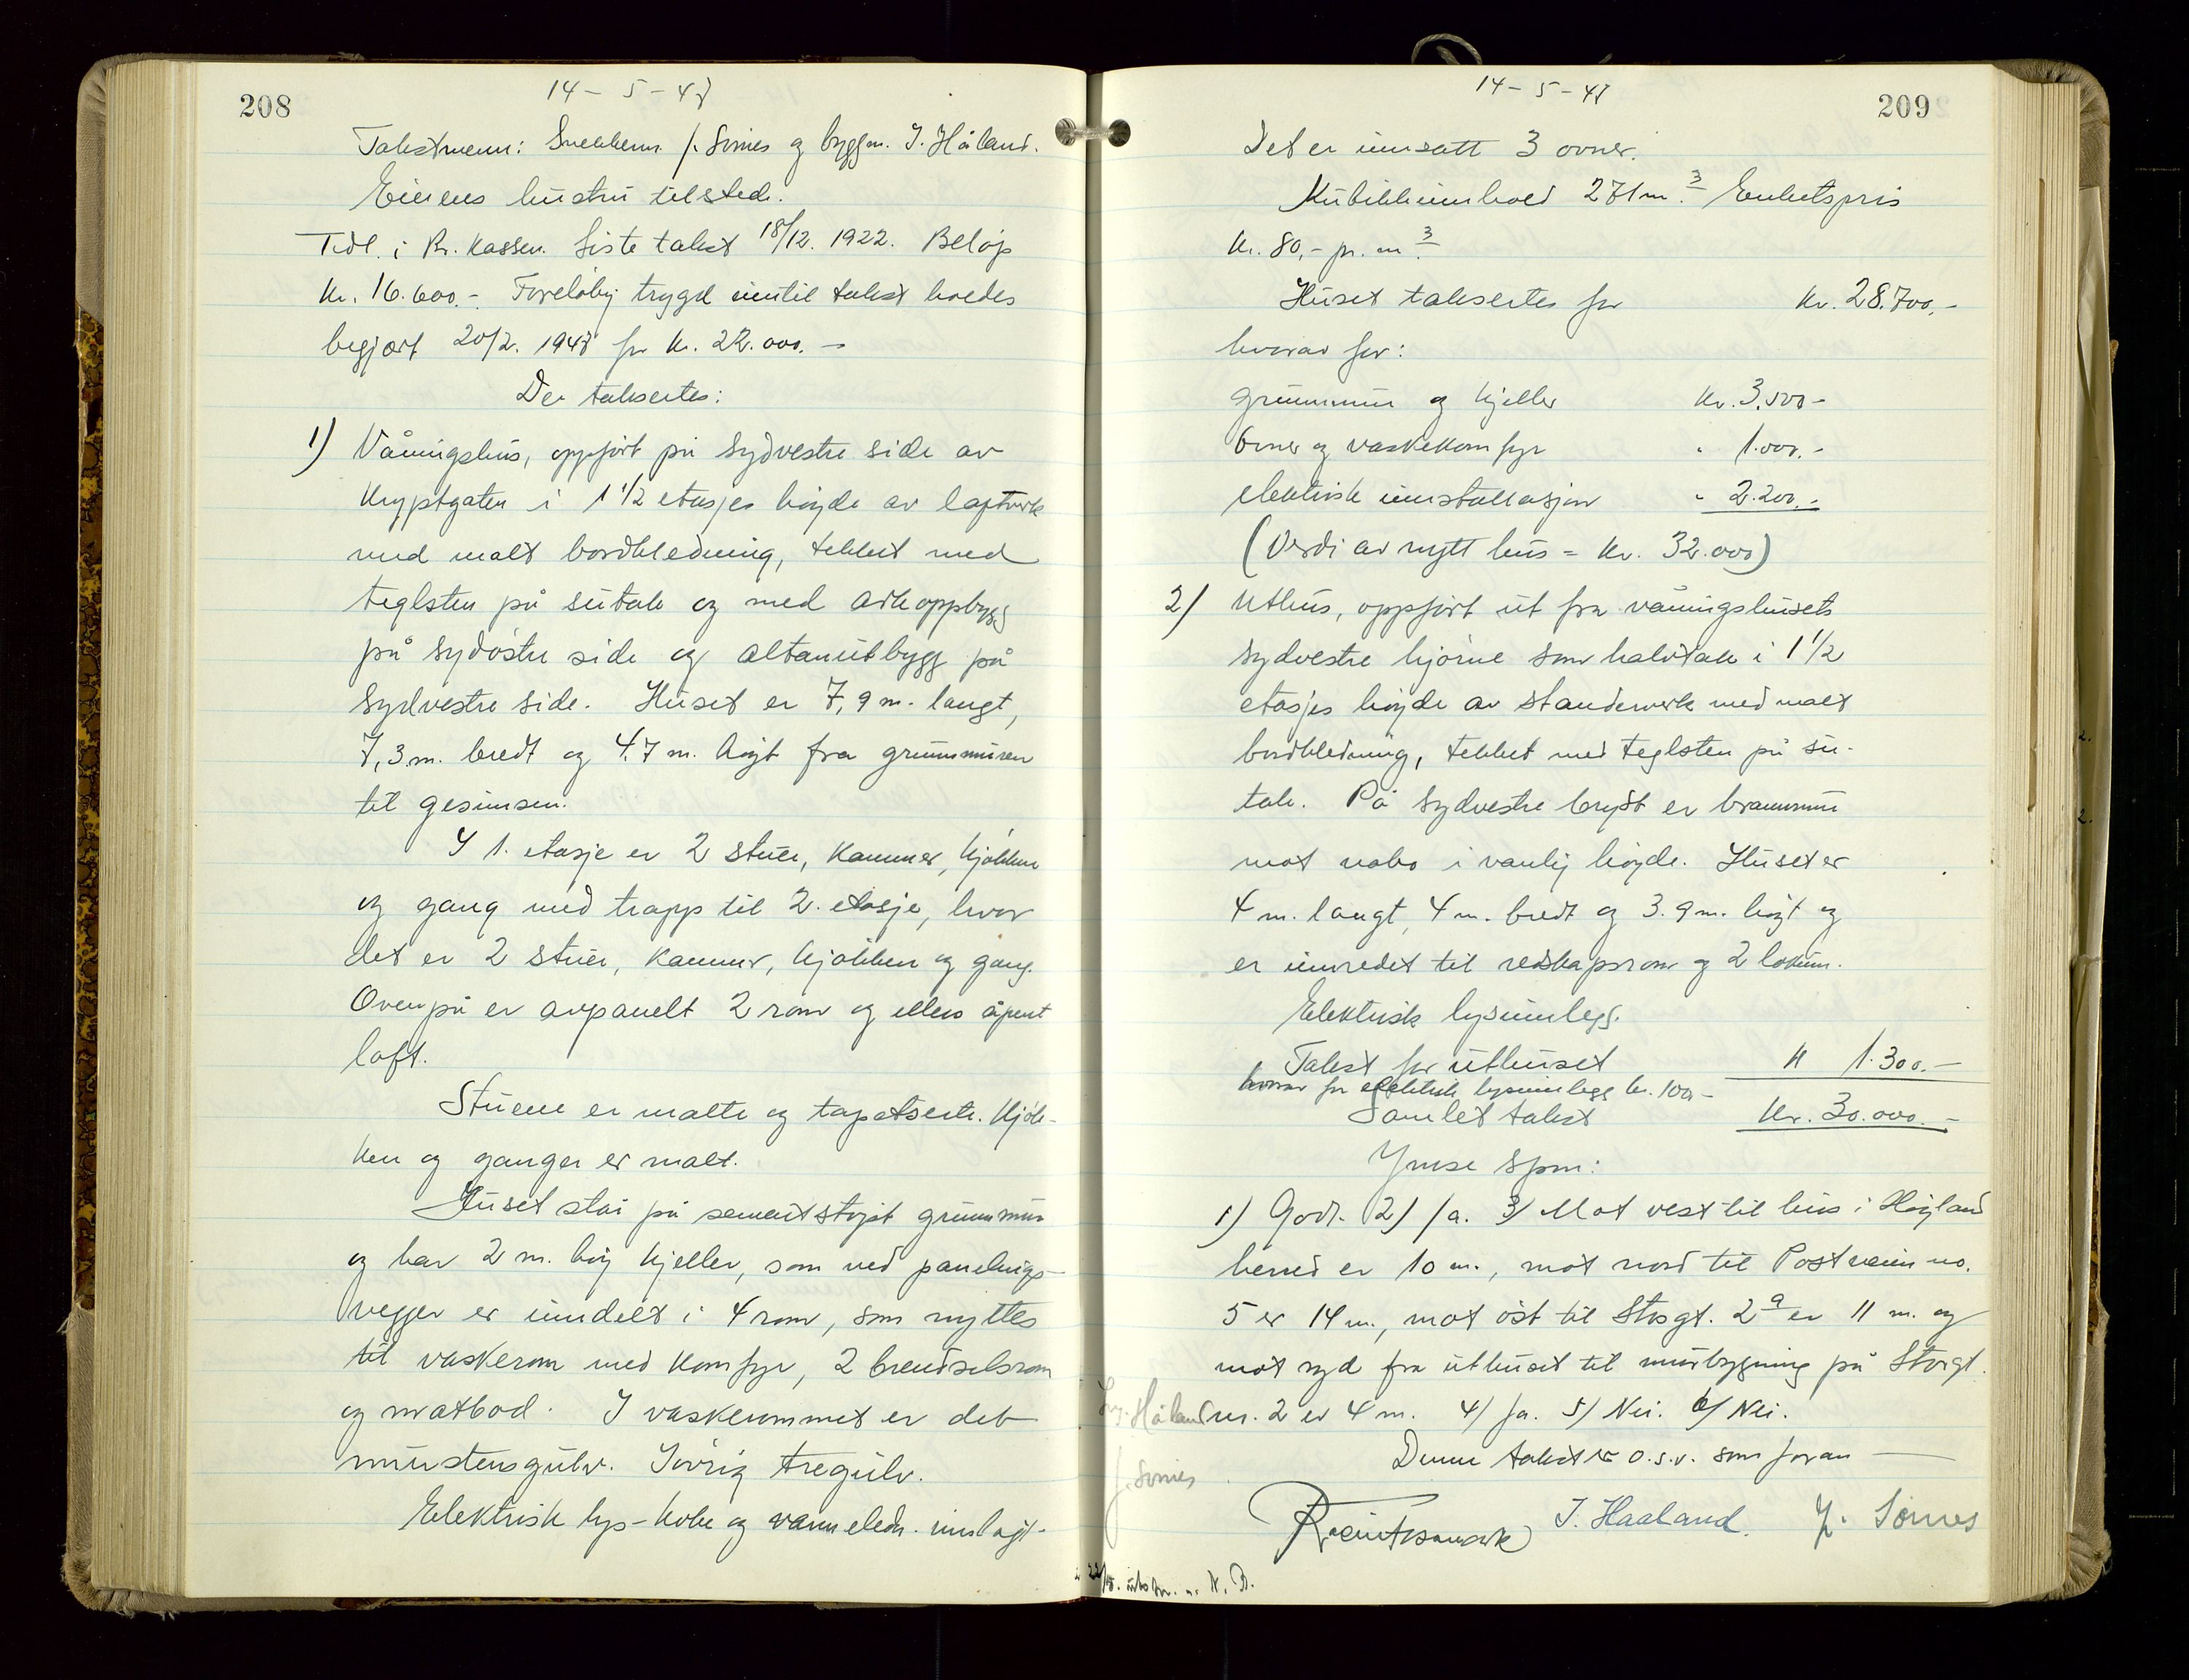 208
14 - 5 - 47
Takstmenn: Snekkerm. J. Sømes og byggm. J. Håland.
Eierens hustru tilsted.
Tidl. i Br. kassen. Siste takst 18/12. 1922. Beløp
kr. 16.600.- Foreløbig trygd inntil takst holdes
begjært 20/2. 1947 for kr. 22.000.-
Der taksertes:
1) Våningshus, oppført på sydvestre side av
Kryptgaten i 1 1/2 etasjes høyde av laftverk
med malt bordkledning, tekket med
teglsten på sutak og med arkoppbygg
på sydøstre side og altanutbygg på
sydvestre side. Huset er 7,9 m. langt,
7,3 m. bredt og 4.7 m. høgt fra grunnmuren
til gesimsen.
I 1. etasje er 2 stuer, kammer, kjøkken
og gang med trapp til 2. etasje, hvor
det er 2 stuer, kammer, kjøkken og gang.
Ovenpå er avpanelt 2 rom og ellers åpent
loft.
Stuene er malte og tapetserte. Kjøk-
ken og ganger er malt.
Huset står på sementstøpt grunnmur
og har 2 m. høg kjeller, som ved panelings-
vegger er inndelt i 4 rom, som nyttes
til vaskerom med komfyr, 2 brendselsrom
og matbod. I vaskerommet er det
murstensgulv. Iøvrig tregulv.
Elektrisk lys- koke og varmeledn. innlagt.
14 - 5 - 47
209
Det er innsatt 3 ovner.
Kubikkinnhold 271 m.3 Enhetspris
kr. 80,- pr. m.3
Huset taksertes for kr. 28.700,-
hvorav for:
grunnmur og kjeller kr. 3.500-
Ovner og vaskekomfyr " 1.000.-
elektrisk innstallasjon " 2.200.-
(Verdi av nytt hus = kr. 32.000)
2) Uthus, oppført ut fra våningshusets
sydvestre hjørne som halvtak i 1 1/2
etasjes høyde av standerverk med malt
bordkledning, tekket med teglsten på su-
tak. På sydvestre bryst er brannmur
mot nabo i vanlig høyde. Huset er
4 m. langt, 4 m. bredt og 3.9 m. høgt og
er innredet til redskapsrom og 2 lokum.
Elektrisk lysinnlegg.
Takst for uthuset " 1.300.-
hvorav for elektrisk lysinnlegg kr. 100,-
Samlet takst kr. 30.000.-
Ymse spm:
1) Godt. 2) Ja. 3) Mot vest til hus i Høyland
herred er 10 m., mot nord til Postveien no.
5 er 14 m., mot øst til Storgt. 2a er 11 m. og
mot syd fra uthuset til murbygning på Storgt.
nr. 2 er 4 m. 4) Ja. 5) Nei. 6) Nei.
Håland
J. Sømes
Denne takst er o.s.v. som foran
J. Haaland. J. Sømes